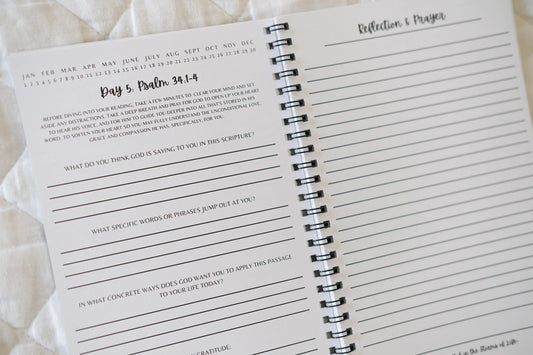 JAN FEB MAR APR MAY JUNE JULY AUG SEPT OCT NOV DEC
1 2 3 4 5 6 7 8 9 10 11 12 13 14 15 16 17 18 19 20 21 22 23 24 25 26 27 28 29 30
Day 5, Psalm 34:1-4
BEFORE DIVING INTO YOUR READING, TAKE A FEW MINUTES TO CLEAR YOUR MIND AND SET
ASIDE ANY DISTRACTIONS. TAKE A DEEP BREATH AND PRAY FOR GOD TO OPEN UP YOUR HEART
TO HEAR HIS VOICE, AND FOR HIM TO GUIDE YOU DEEPER INTO ALL THAT'S STORED IN HIS
WORD. TO SOFTEN YOUR HEART SO YOU MAY FULLY UNDERSTAND THE UNCONDITIONAL LOVE,
GRACE AND COMPASSION HE HAS, SPECIFICALLY, FOR YOU.
WHAT DO YOU THINK GOD IS SAYING TO YOU IN THIS SCRIPTURE?
WHAT SPECIFIC WORDS OR PHRASES JUMP OUT AT YOU?
IN WHAT CONCRETE WAYS DOES GOD WANT YOU TO APPLY THIS PASSAGE
TO YOUR LIFE TODAY?
GRATITUDE:
Reflection & Prayer
in the Storms of Life